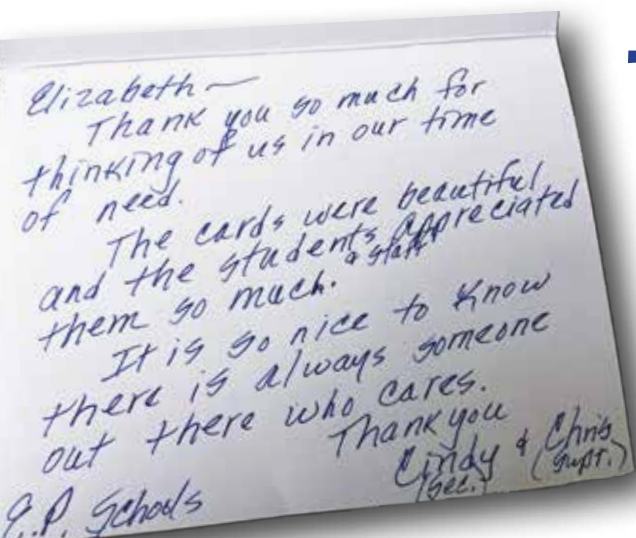 Elizabeth —
Thank you so much for
thinking of us in our time
of need.
The cards were beautiful
and the students & staff appreciated
them so much.
It is so nice to know
there is always someone
out there who cares.
Thank you
Cindy & Chris
(Sec.) (Supt.)
Schools